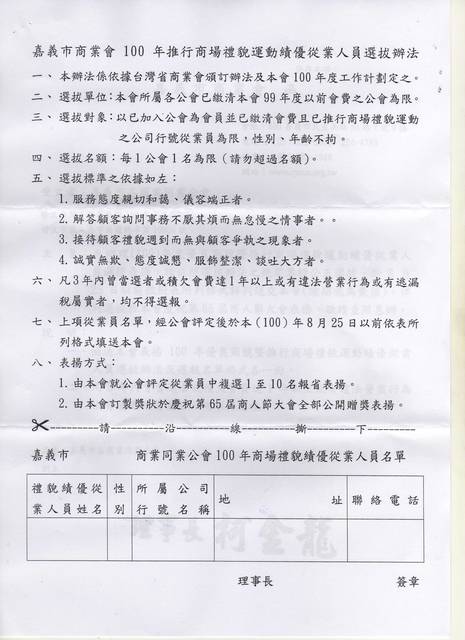 嘉義市商業會 100 年推行商場禮貌運動績優從業人員選拔辦法
一、本辦法係依據台灣省商業會頒訂辦法及本會 100 年度工作計劃定之。
二、選拔單位:本會所屬各公會已繳清本會 99 年度以前會費之公會為限。
三、選拔對象:以已加入公會為會員並已繳清會費且已推行商場禮貌運動
之公司行號從業員為限,性別、年齡不拘。
四、選拔名額:每1公會1名為限(請勿超過名額)。
五、選拔標準之依據如左:
1.服務態度親切和藹、儀容端正者。
2.解答顧客詢問事務不厭其煩而無怠慢之情事者。。
3.接待顧客禮貌週到而無與顧客爭執之現象者。
4.誠實無欺、態度誠懇、服飾整潔、談吐大方者。
六、凡3年內曾當選者或積欠會費達1年以上或有違法營業行為或有逃漏
稅屬實者,均不得選報。
七、上項從業員名單,經公會評定後於本(100)年8月25日以前依表所
列格式填送本會。
八、表揚方式:
1.由本會就公會評定從業員中複選1至10名報省表揚。
2.由本會訂製獎狀於慶祝第65屆商人節大會全部公開贈獎表揚。
----------請----------沿----------線----------撕----------下----------
嘉義市 商業同業公會100年商場禮貌績優從業人員名單
禮貌績優從業人員姓名 性別 所屬公司行號名稱 地址 聯絡電話
理事長 簽章